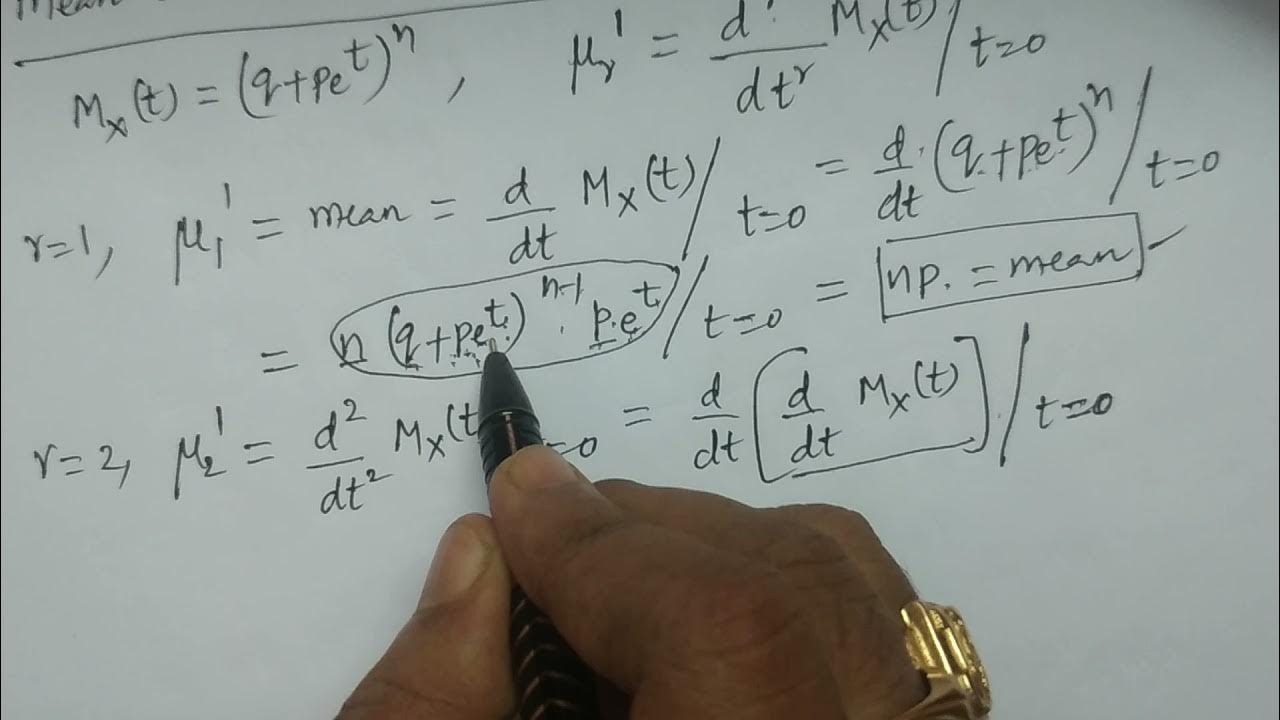 Mean
M_X(t) = (q+pe^t)^n , μ_r' = d^r/dt^r M_X(t) / t=0
r=1, μ_1' = mean = d/dt M_X(t) / t=0 = d/dt (q+pe^t)^n / t=0
= n(q+pe^t)^{n-1} · p.e^t / t=0 = np. = mean
r=2, μ_2' = d^2/dt^2 M_X(t =0 = d/dt [d/dt M_X(t)] / t=0